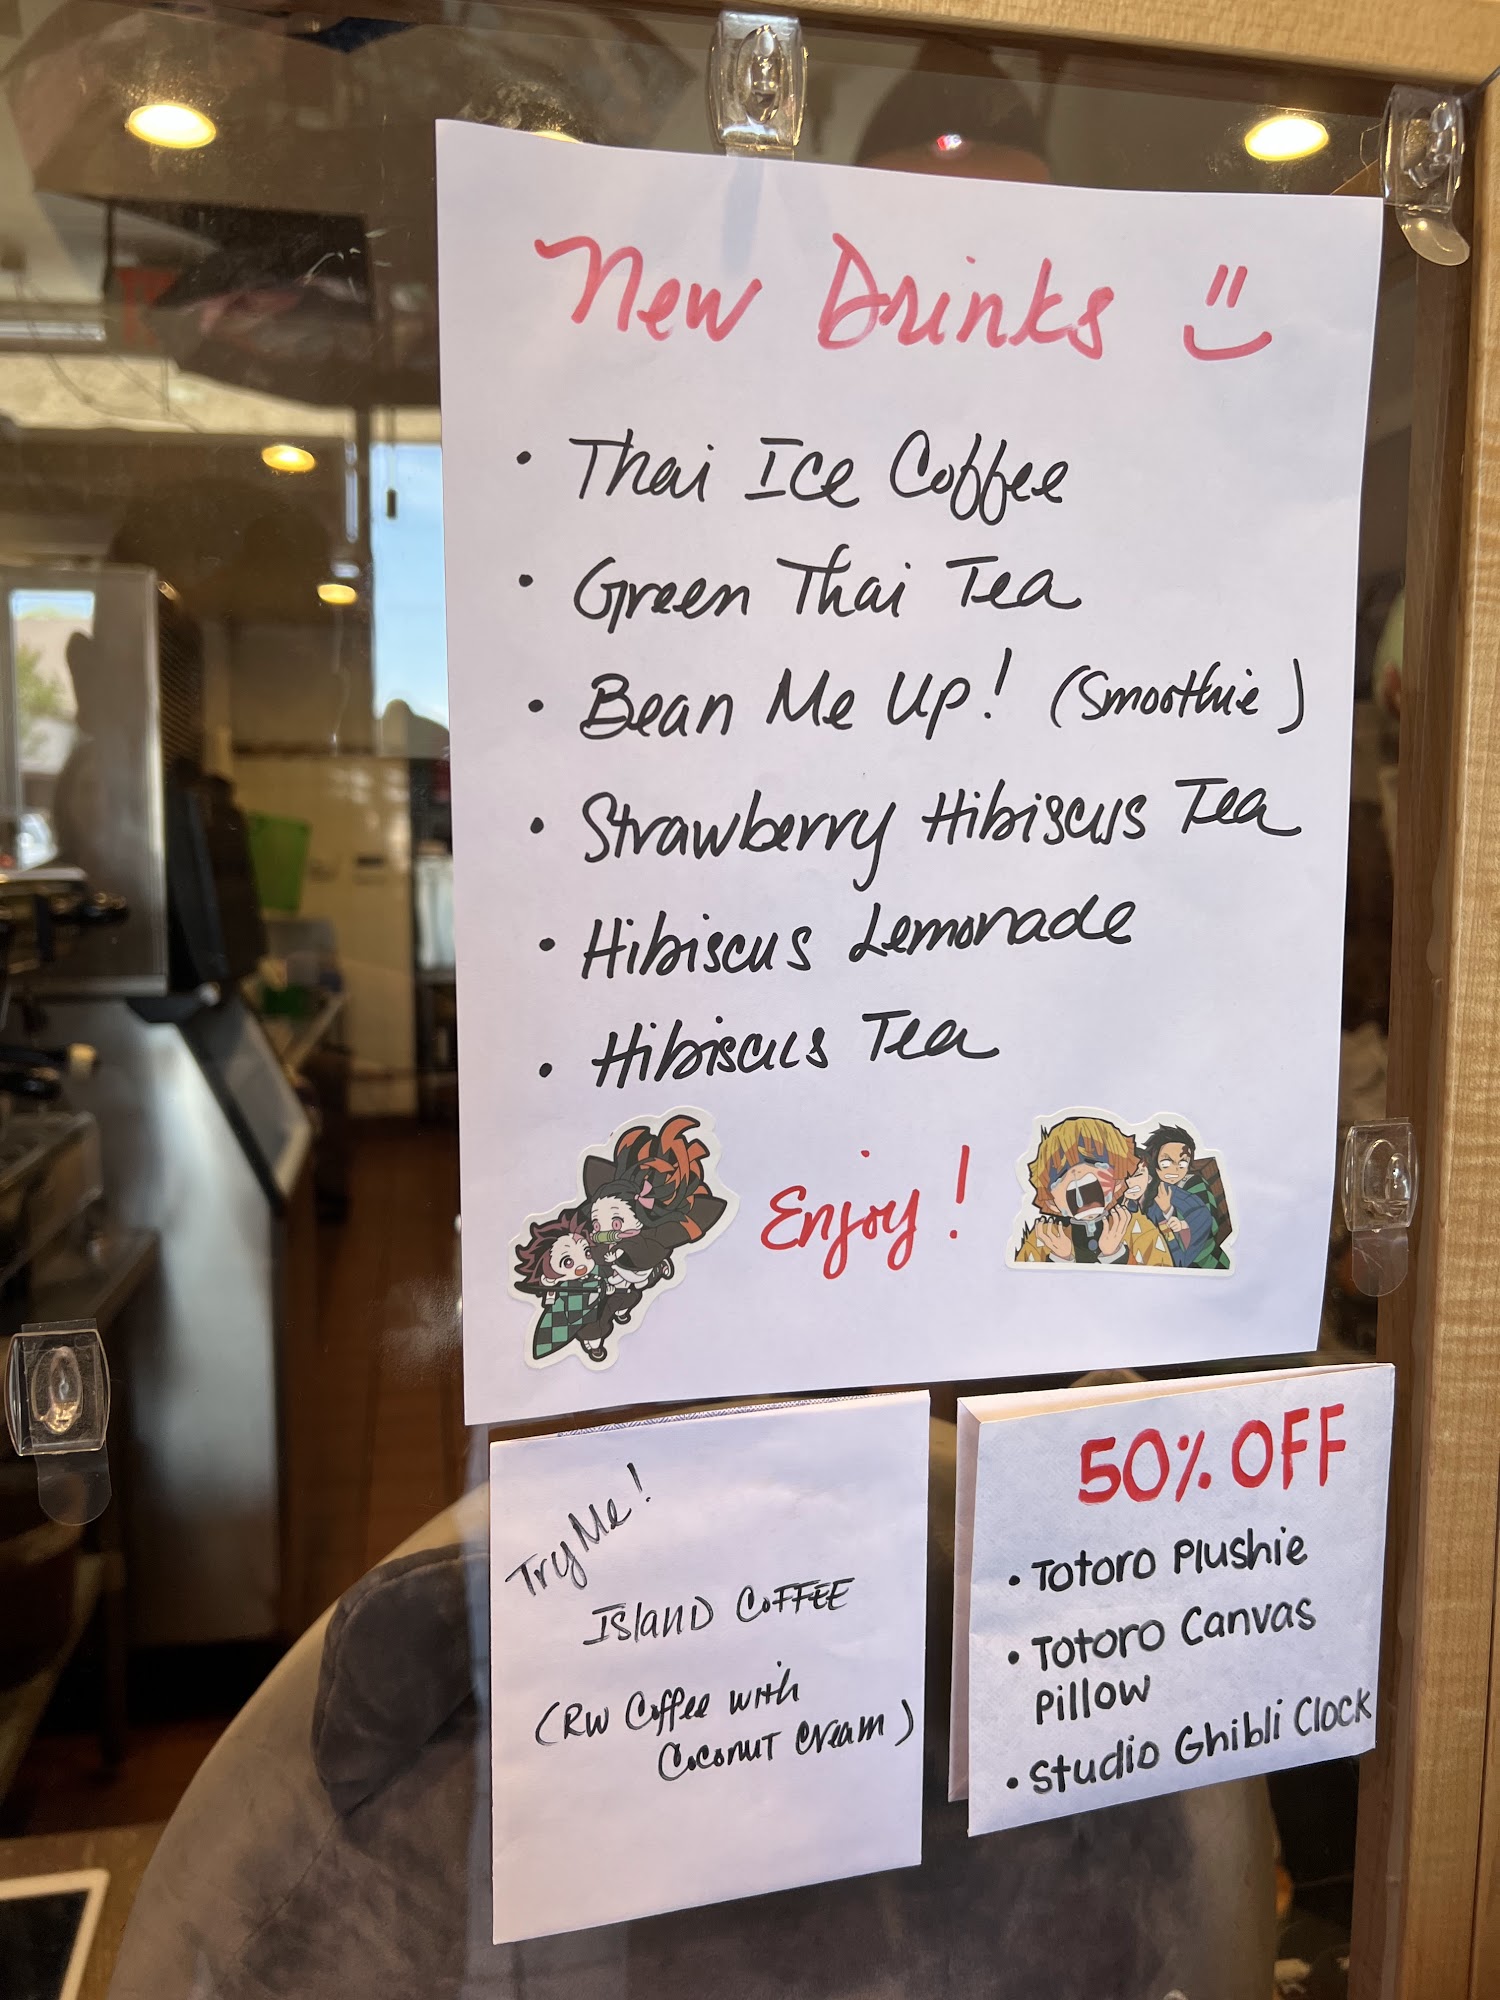 New Drinks
• Thai Ice Coffee
• Green Thai Tea
• Bean Me Up! (Smoothie)
• Strawberry Hibiscus Tea
• Hibiscus Lemonade
• Hibiscus Tea
Enjoy!
Try Me!
Island Coffee
(RW Coffee with
Coconut Cream)
50% OFF
• Totoro Plushie
• Totoro Canvas
Pillow
• Studio Ghibli Clock